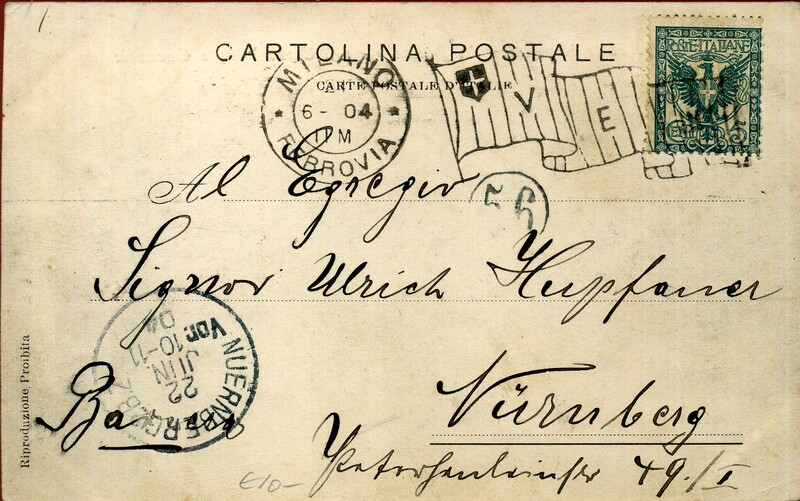 CARTOLINA POSTALE
CARTE POSTALE D'ITALIE
MILANO
6- 04
PM
FERROVIA
V E
POSTE ITALIANE
56
Al Egregio
Signor Ulrich Hupfauer
Nürnberg
49./I
NUERNBERG
22
JUN.
Vor. 10-11
04
€10-
Riproduzione Proibita